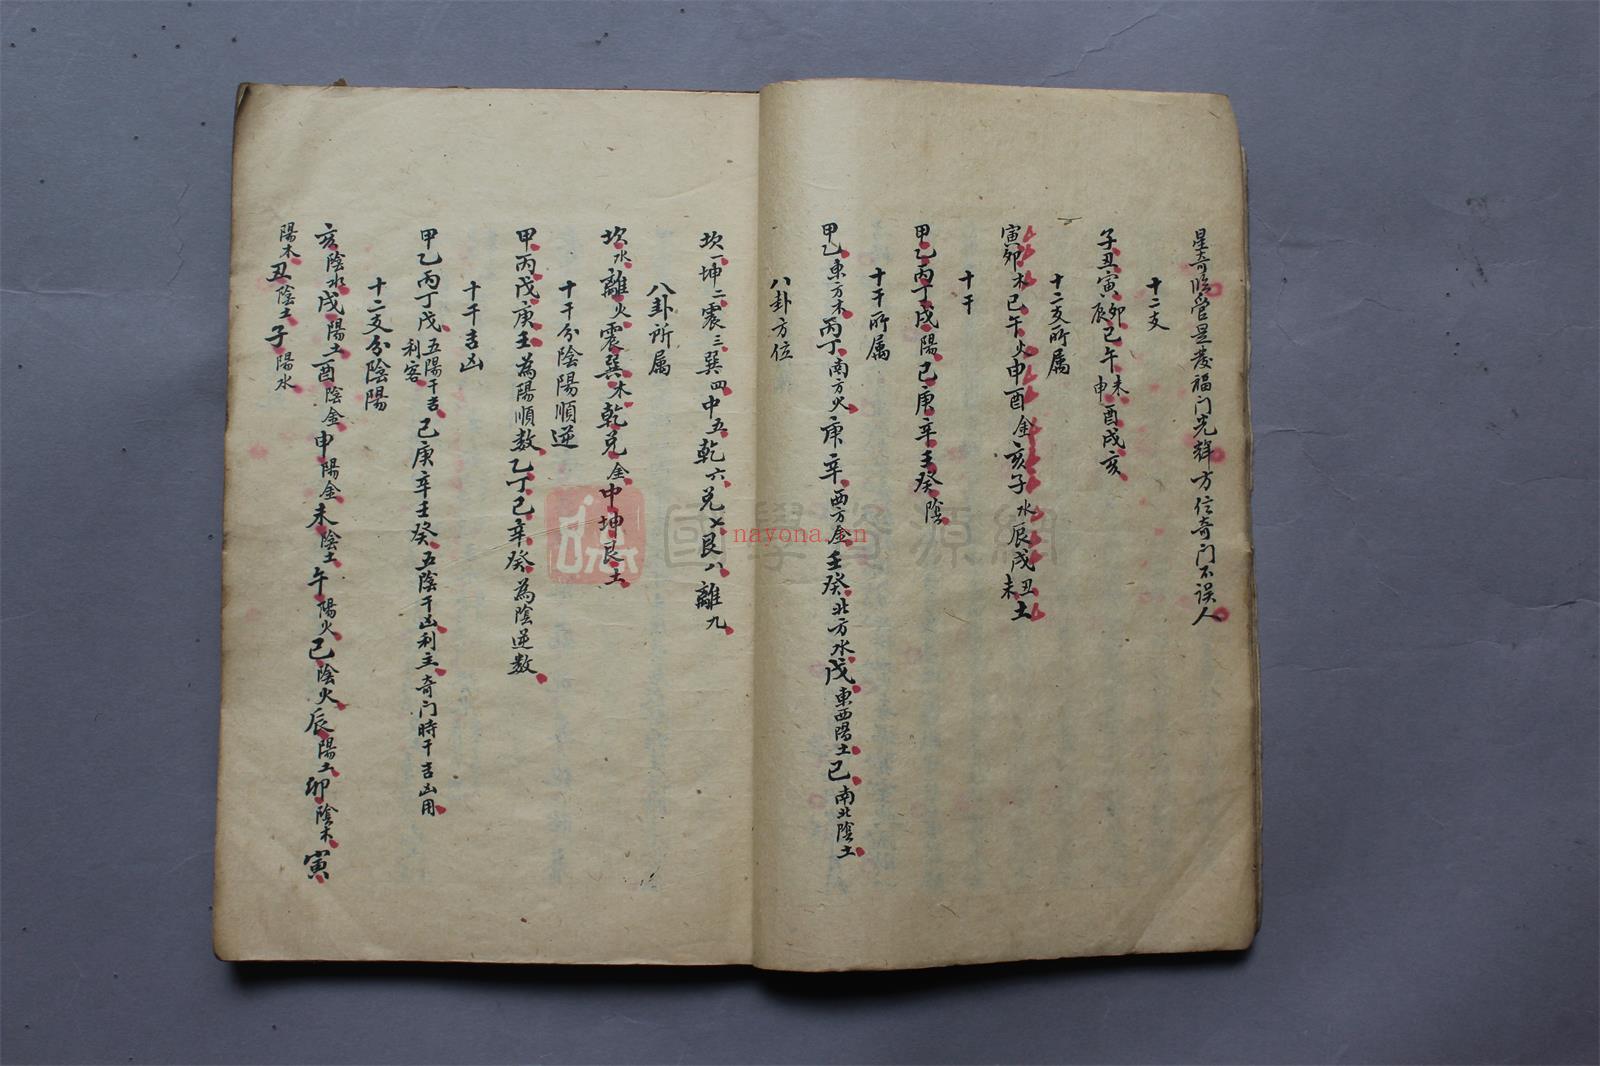 星奇臨官是慶福門光輝方位奇门不误人
十二支
子丑寅卯辰巳午未申酉戌亥
十二支所属
寅卯木巳午火申酉金亥子水辰戌丑未土
十干
甲乙丙丁戊陽己庚辛壬癸陰
十干所属
甲乙東方木丙丁南方火庚辛西方金壬癸北方水戊東西陽土己南北陰土
八卦方位
坎一坤二震三巽四中五乾六兑七艮八離九
八卦所属
坎水離火震巽木乾兑金中坤艮土
十干分陰陽順逆
甲丙戊庚壬為陽順数乙丁己辛癸為陰逆数
十干吉凶
甲乙丙丁戊五陽干吉利客己庚辛壬癸五陰干凶利主奇门時干吉凶用
十二支分陰陽
亥陰水戌陽土酉陰金申陽金未陰土午陽火巳陰火辰陽土卯陰木寅
陽木丑陰土子陽水
國學資源網
nayona.cn